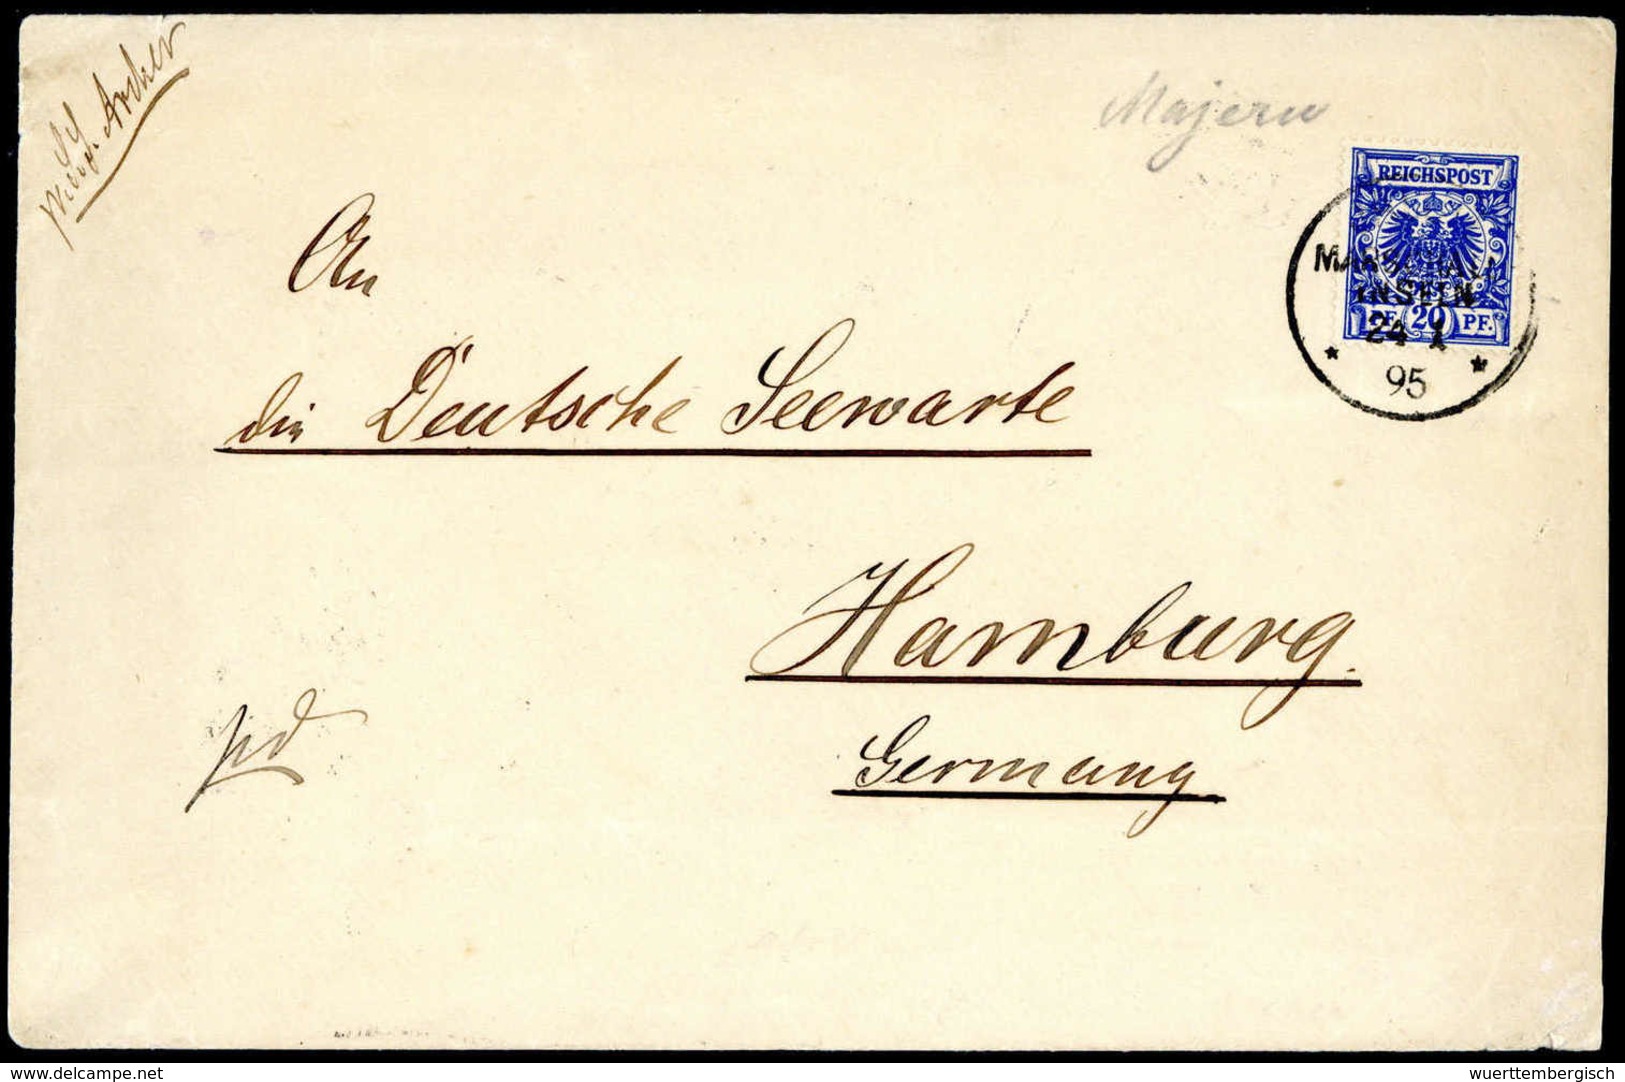 Archer
Majeru
REICHSPOST
PF. 20 PF.
MARSHALL-
INSELN
24 1
95
An
die Deutsche Seewarte
Hamburg.
Germany.
delcampe.net
wuerttembergisch